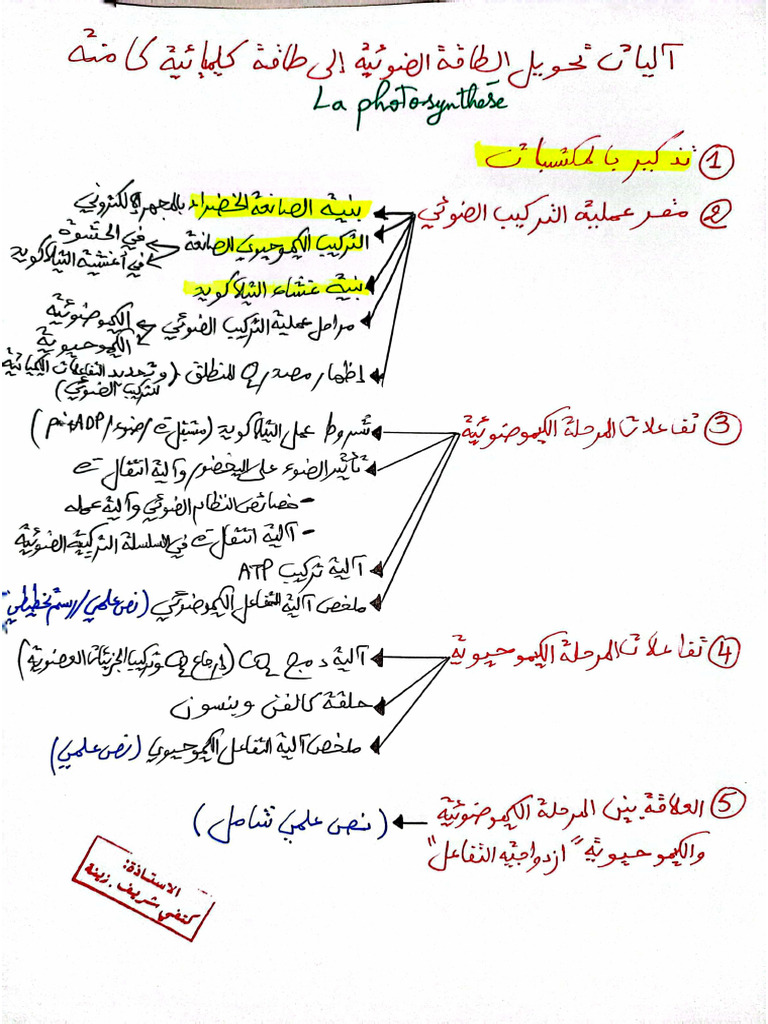 آليات تحويل الطاقة الضوئية إلى طاقة كيميائية كامنة
La photosynthèse
① تذكير بالمكتسبات
② مقر عملية التركيب الضوئي
بنية الصانعة الخضراء بالمجهر الإلكتروني
التركيب الكيموحيوي الصانعة
في الحشوة
في أغشية التيلاكويد
بنية غشاء التيلاكويد
مراحل عملية التركيب الضوئي
الكيموضوئية
الكيموحيوية
إظهار مصدر O2 المنطلق (وتحديد التفاعلات الكيميائية
للتركيب الضوئي)
③ تفاعلات المرحلة الكيموضوئية
شروط عمل التيلاكويد (مستقبل e-/ضوء/Pi+ADP)
تأثير الضوء على اليخضور وآلية انتقال e-
- خصائص النظام الضوئي وآلية عمله
- آلية انتقال e- في السلسلة التركيبية الضوئية
آلية تركيب ATP
ملخص آلية التفاعل الكيموضوئي (نص علمي/رسم تخطيطي)
④ تفاعلات المرحلة الكيموحيوية
آلية دمج CO2 (إرجاع CO2 وتركيب الجزيئات العضوية)
حلقة كالفن وبنسون
ملخص آلية التفاعل الكيموحيوي (نص علمي)
⑤ العلاقة بين المرحلة الكيموضوئية
والكيموحيوية "ازدواجية التفاعل"
(نص علمي شامل)
الاستاذة:
كتفي شريف. زينة